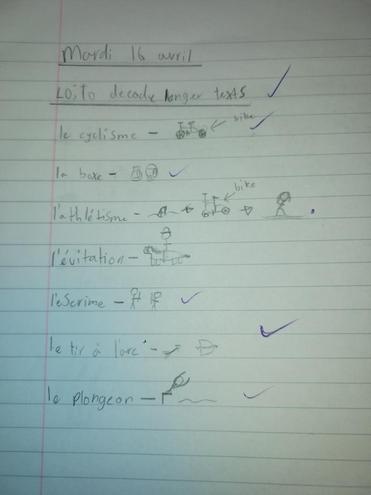 Mardi 16 avril
LO: To decode longer texts
le cyclisme - bike
la boxe -
bike
l'athlétisme -
l'évitation -
l'escrime -
le tir à l'arc -
le plongeon -